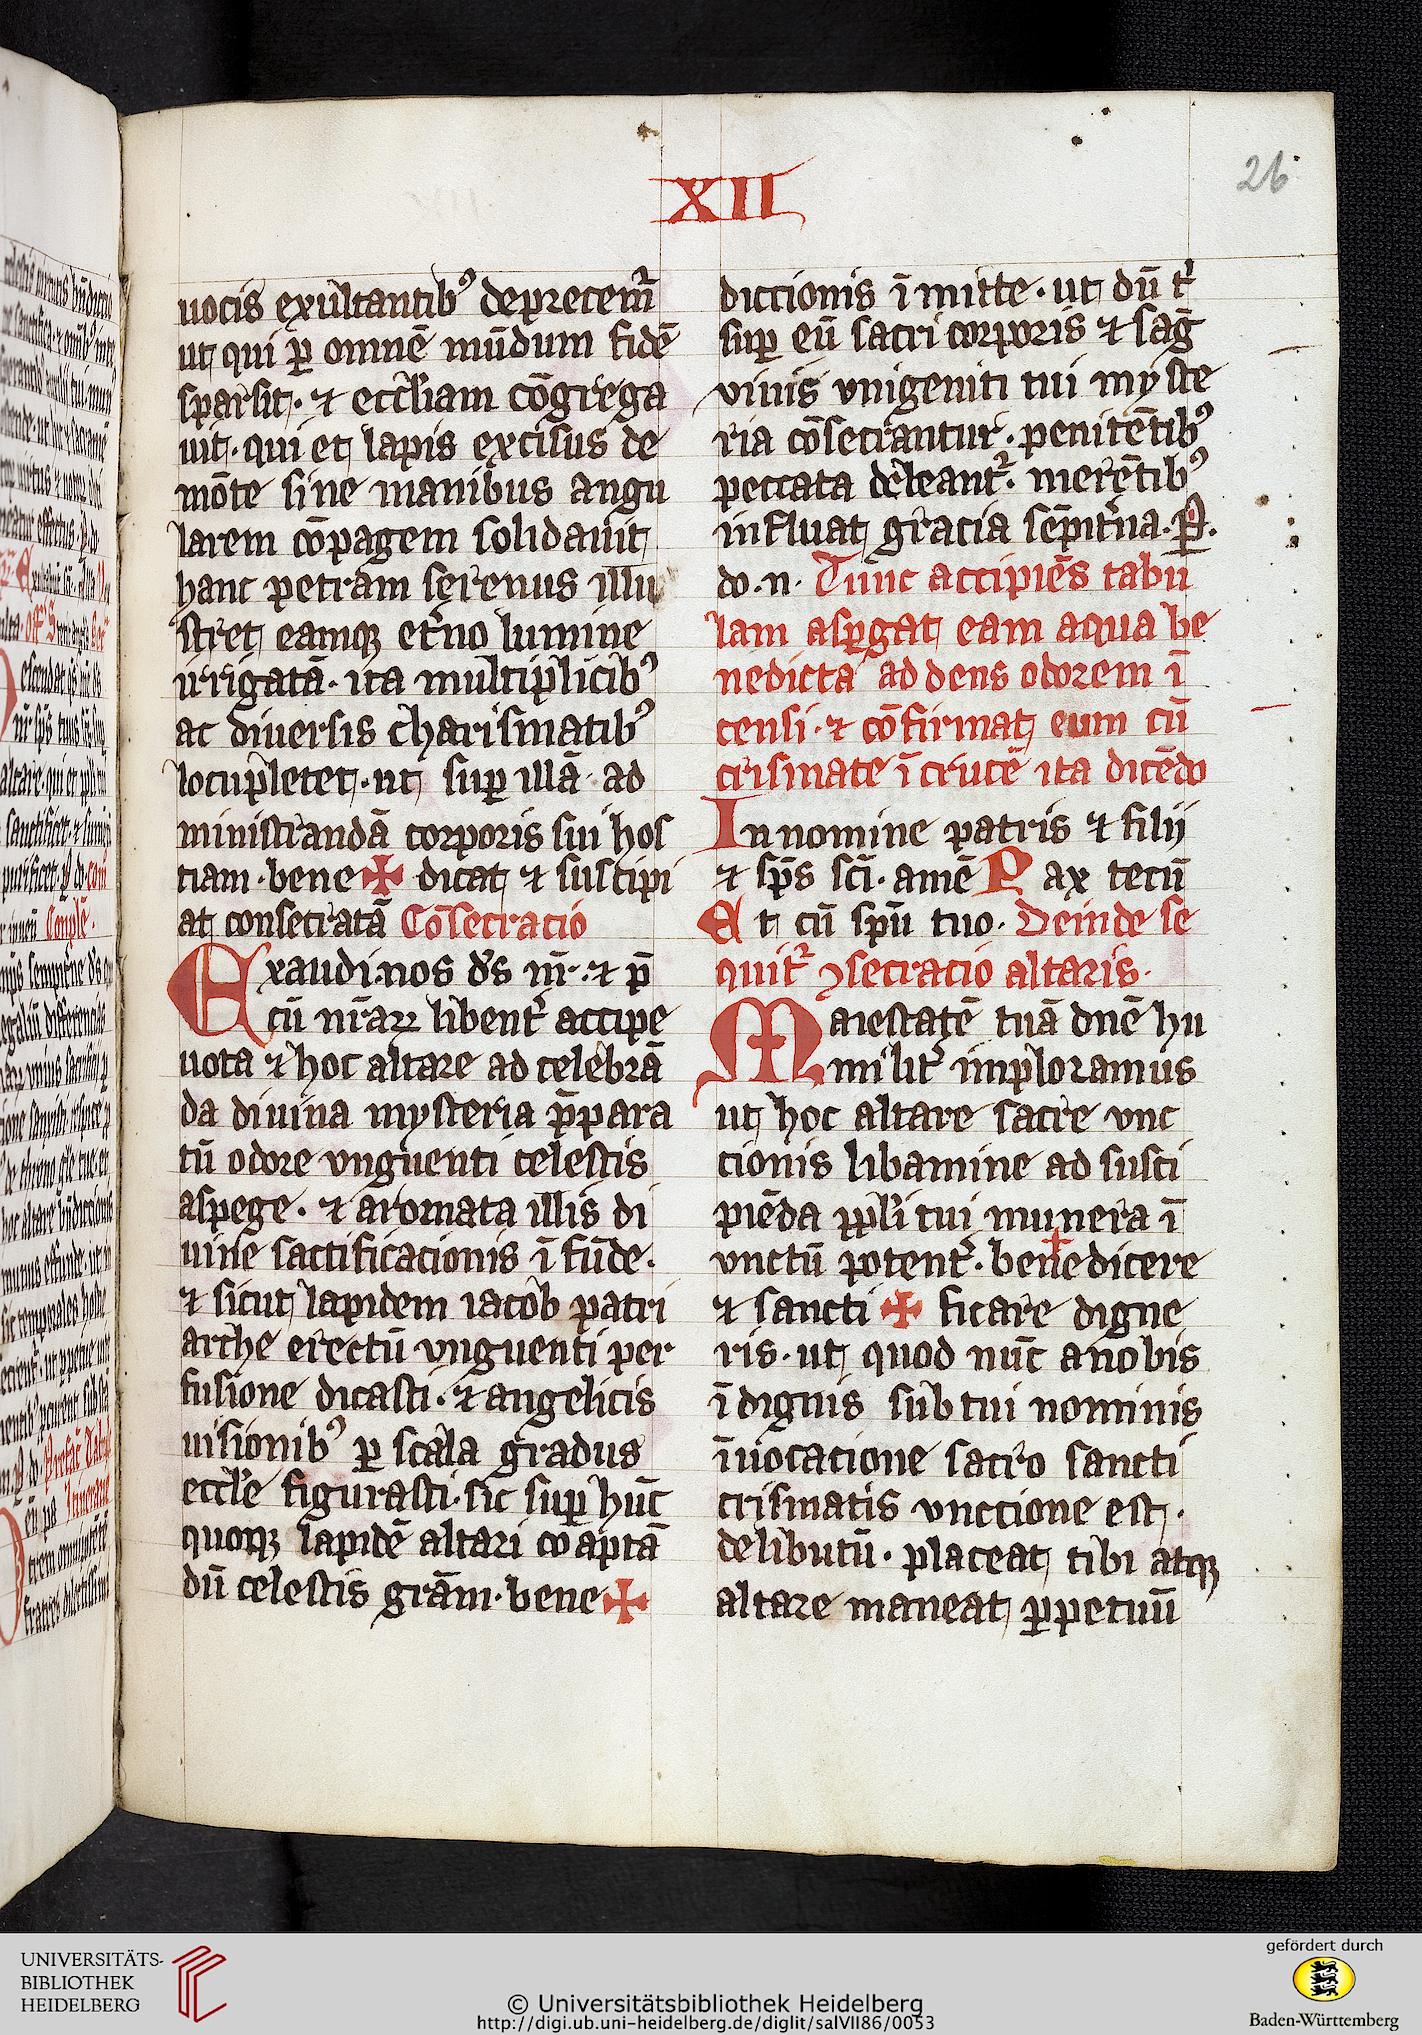 XII
26
uocis exultantibꝰ deprecem̃
ut qui ꝑ omnē mūdum fidē
sparsit· ⁊ eccl̃iam cōgrega
uit· qui et lapis excisus de
mōte sine manibus angu
larem cōpagem solidauit
hanc petram serenus illu
stret eamqꝫ et̃no lumine
irrigatā· ita multiplicibꝰ
ac diuersis charismatibꝰ
locupletet· ut suꝑ illā ad
ministrandā corporis sui hos
tiam· bene ✠ dicat ⁊ suscipi
at consecratā Cōsecracio
Exaudi nos ds̃ nr̃· ⁊ p̄
cū nr̃aꝝ libent̃ accipe
uota ⁊ hoc altare ad celebrā
da diuina mysteria p̄para
tū odore vnguenti celestis
asperge· ⁊ aromata illis di
uine sactificacionis ī fūde·
⁊ sicut lapidem iacob patri
arche erectū vnguenti per
fusione dicasti· ⁊ angelicis
uisionibꝰ ꝑ scala gradus
eccl̃e figurasti· sic suꝑ hūc
quoqꝫ lapidē altari coaptā
dū celestis grãm· bene ✠
diccionis ī mitte· ut dū t̃
suꝑ eū sacri corporis ⁊ sãg
vinis vnigeniti tui myste
ria cōsecrantur· penitētibꝰ
peccata deleant᷑· merētibꝰ
influat gracia sēpit̃na· P̲·
do· n· Tunc accipiēs tabu
lam asꝑgat eam aqua be
nedicta addens odorem ī
censi· ⁊ cōfirmat eum cū
crismate ī crucē ita dicēdo
In nomine patris ⁊ filij
⁊ sp̃s sc̃i· amē Pax tecū
Et cū sp̃u tuo· Deinde se
quit᷑ ꝯsecracio altaris·
Maiestatē tuā dn̄e hu
milit̃ imploramus
ut hoc altare sacre vnc
cionis libamine ad susci
piēda pp̃li tui munera ī
vnctū potent̃· bene ✠ dicere
⁊ sancti ✠ ficare digne
ris· ut quod nūc a nobis
ī dignis sub tui nominis
īuocacione sacro sancti
crismatis vnccione est·
delibutū· placeat tibi atqꝫ
altare maneat ꝑpetuū
UNIVERSITÄTS-
BIBLIOTHEK
HEIDELBERG
© Universitätsbibliothek Heidelberg
http://digi.ub.uni-heidelberg.de/diglit/salVII86/0053
gefördert durch
Baden-Württemberg